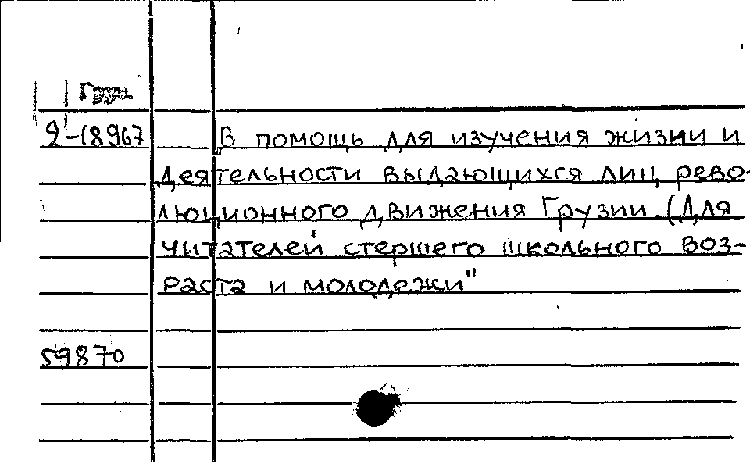 Груз.
2-18967
В помощь для изучения жизни и
деятельности выдающихся лиц рево-
люционного движения Грузии (Для
читателей стершего школьного воз-
раста и молодежи"
59870